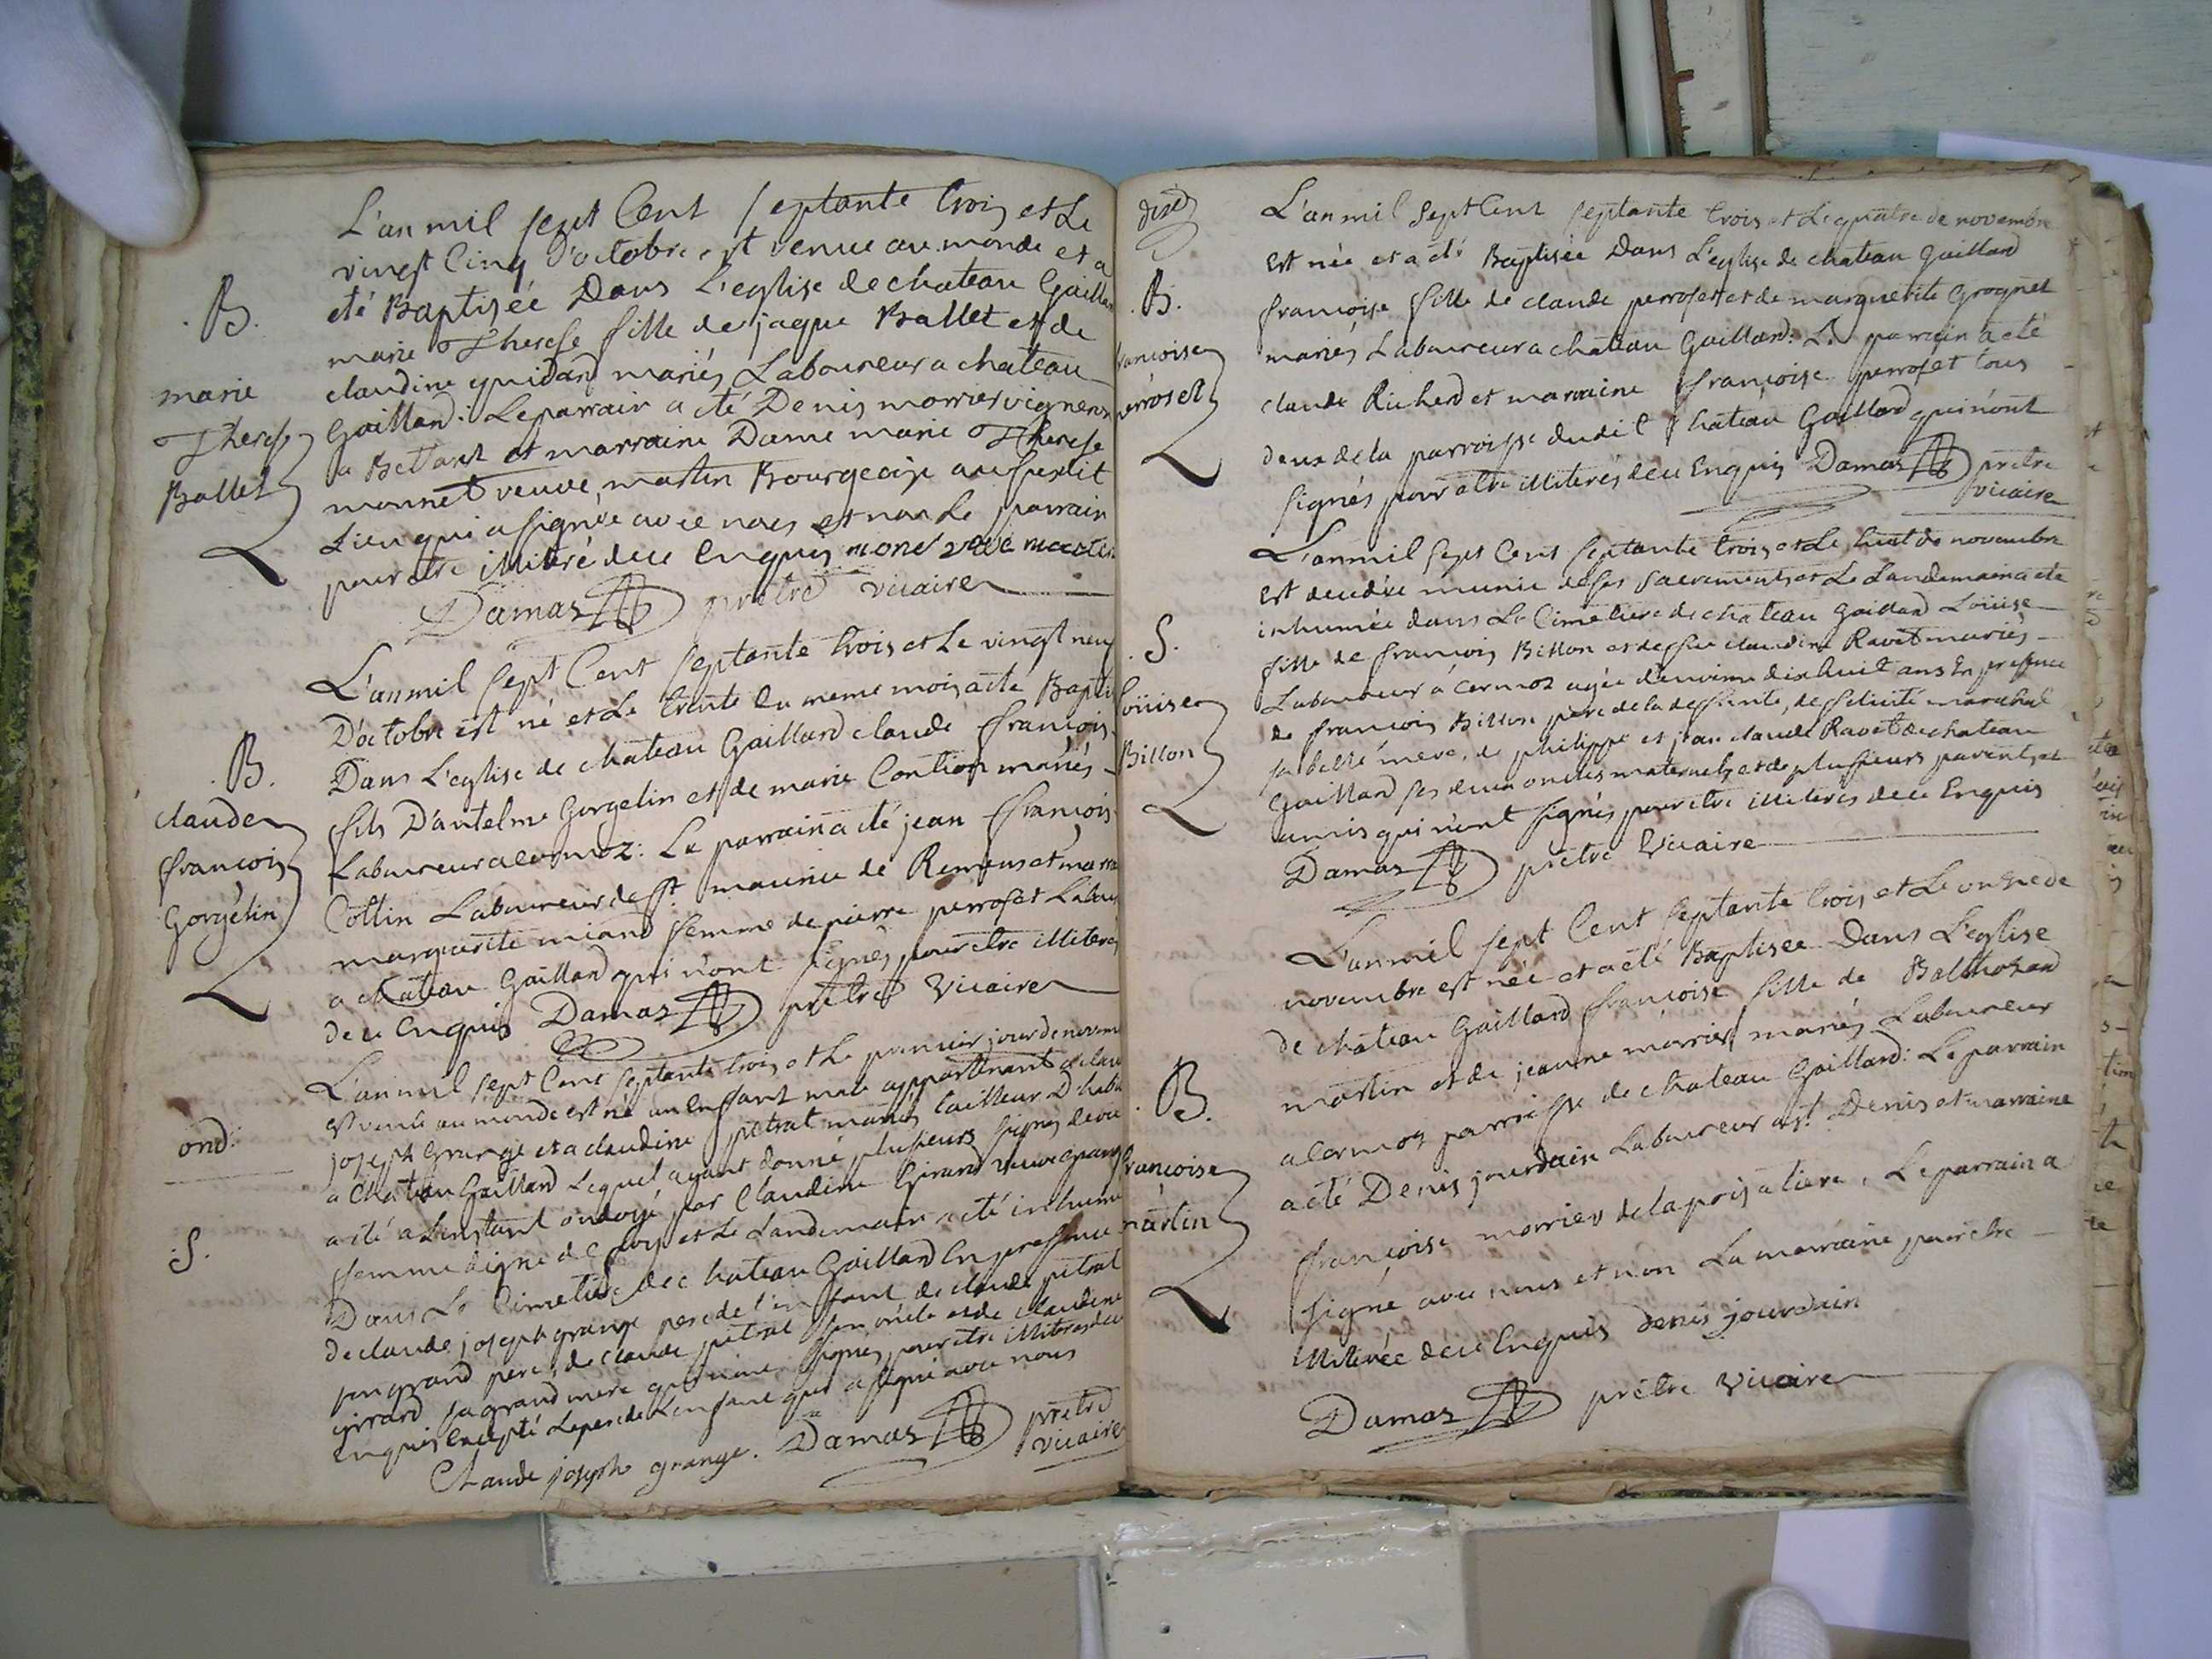 L'an mil sept Cent septante trois et Le
vingt Cinq d'octobre est venue au monde et a
B.
été Baptisée Dans L'eglise de chateau Gaillard
marie Therese fille de jaque Ballet et de
claudine guidard mariés Laboureur a chateau
marie
Therese
Ballet
Gaillard: Le parrain a été Denis morrier vigneron
a Bettant et marraine Dame marie Therese
monnet veuve martin Bourgeoise au susdit
Lieu qui a signée avec nous et non Le parrain
pour etre illiteré de ce Enquis monet veve martin
Damas prêtre vicaire
L'an mil sept Cent septante trois et Le vingt neuf
D'octobre est né et Le trente du meme mois a été Bapti
B.
Dans L'eglise de chateau Gaillard claude françois
claude
françois
Gorgelin
fils D'antelme Gorgelin et de marie mariés
Laboureur a cormoz: Le parrain a été jean françois
Cottin Laboureur de st maurice de Remens et marra
marguerite miand femme de pierre perroset Labou
a chateau Gaillard qui n'ont signés pour etre illiterés
de ce Enquis Damas prêtre Vicaire
L'an mil sept Cent septante trois et Le premier jour de novem
ond:
est né un enfant male appartenant a clau
joseph Grange et a claudine pitrat mariés tailleur D'habi
a Chateau Gaillard Lequel ayant donné plusieurs signes de vie
a été a L'instant ondoyé par Claudine Girard
S.
femme digne de foy et Le Landemain a été inhumé
Dans Le Cimetiere de chateau Gaillard En presence
de claude joseph grange pere de l'enfant de claude pitrat
son grand pere, de claude pitrat son oncle et de claudine
girard sa grand mere qui signés pour etre illiterés de ce
Enquis Excepté Le pere de L'enfant qui a signé avec nous
Claude joseph grange. Damas prêtre
vicaire
L'an mil sept Cent septante trois et Le quatre de novembre
est née et a été Baptisée Dans L'eglise de chateau Gaillard
B.
françoise
perroset
françoise fille de claude perroset et de marguerite Grognet
mariés Laboureur a chateau Gaillard: Le parrain a été
claude Richerd et marraine françoise perroset tous
deux de la parroisse dudit Chateau Gaillard qui n'ont
signés pour etre illiterés de ce Enquis Damas prêtre
vicaire
L'an mil sept Cent septante trois et Le huit de novembre
est decedée munie de ses sacrements et Le Landemain a été
S.
Loüise
Billon
inhumée dans Le Cimetiere de chateau Gaillard Loüise
fille de françois Billon et de feu claudine Ravet mariés
Laboureur à cormoz agée d'environ dixhuit ans En presence
de françois Billon pere de la deffunte, de felicité marechal
sa belle mere, de philippe et jean claude Ravet de chateau
Gaillard ses deux oncles maternels et de plusieurs parents et
amis qui n'ont signés pour etre illiterés de ce Enquis
Damas prêtre Vicaire
L'an mil sept Cent septante trois et Le onze de
novembre est née et a été Baptisée Dans L'eglise
de chateau Gaillard françoise fille de Balthazard
B.
françoise
martin
martin et de jeanne morrier mariés Laboureur
a Cormoz parroisse de chateau Gaillard: Le parrain
a été Denis jourdain Laboureur a st Denis et marraine
françoise morrier de la poisatiere, Le parrain a
signé avec nous et non La marraine pour etre
illiterée de ce Enquis denis jourdain
Damas prêtre vicaire